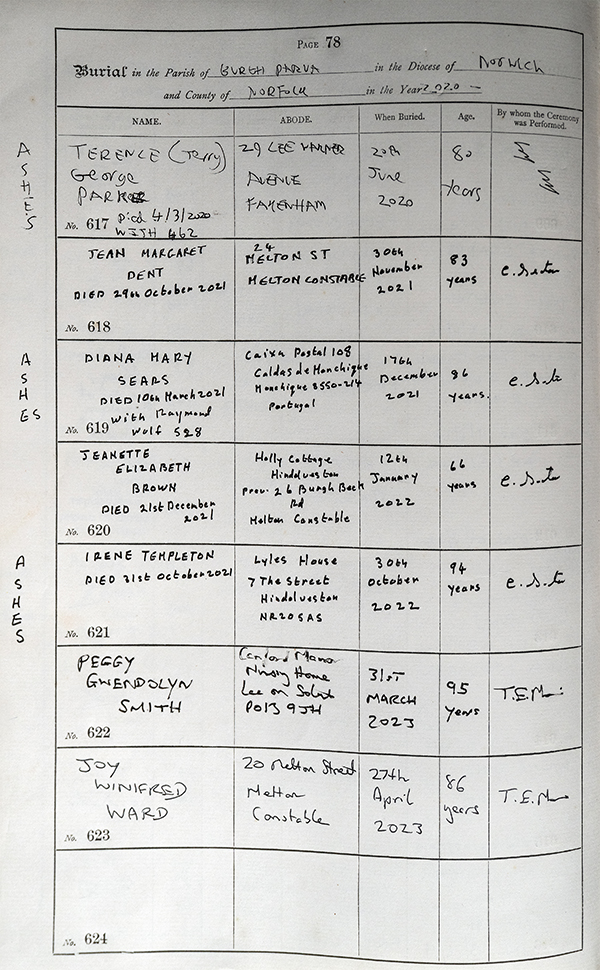 PAGE 78
Burial in the Parish of BURGH PARVA in the Diocese of Norwich
and County of NORFOLK in the Year 2020 -
NAME. ABODE. When Buried. Age. By whom the Ceremony was Performed.
ASHES
TERENCE (Terry)
George
PARKE
No. 617 Died 4/3/2020
WITH 462
29 LEE WARNER
AVENUE
FAKENHAM
20th
June
2020
80
Years
JEAN MARGARET
DENT
DIED 29th October 2021
No. 618
24
MELTON ST
MELTON CONSTABLE
30th
November
2021
83
years
ASHES
DIANA MARY
SEARS
DIED 10th March 2021
With Raymond
No. 619 Wolf 528
Caixa Postal 108
Caldas de Monchique
Monchique 8550-214
Portugal
17th
December
2021
86
years.
JEANETTE
ELIZABETH
BROWN
DIED 21st December
2021
No. 620
Holly Cottage
Hindolveston
prev. 26 Burgh Beck
Rd
Melton Constable
12th
January
2022
66
years
ASHES
IRENE TEMPLETON
DIED 21st October 2021
No. 621
Lyles House
7 The Street
Hindolveston
NR20 5AS
30th
October
2022
94
years
PEGGY
GWENDOLYN
SMITH
No. 622
Manor
Nursing Home
Lee on Solent
PO13 9JH
31ST
MARCH
2023
95
Years
JOY
WINIFRED
WARD
No. 623
20 Melton Street
Melton
Constable
27th
April
2023
86
years
No. 624